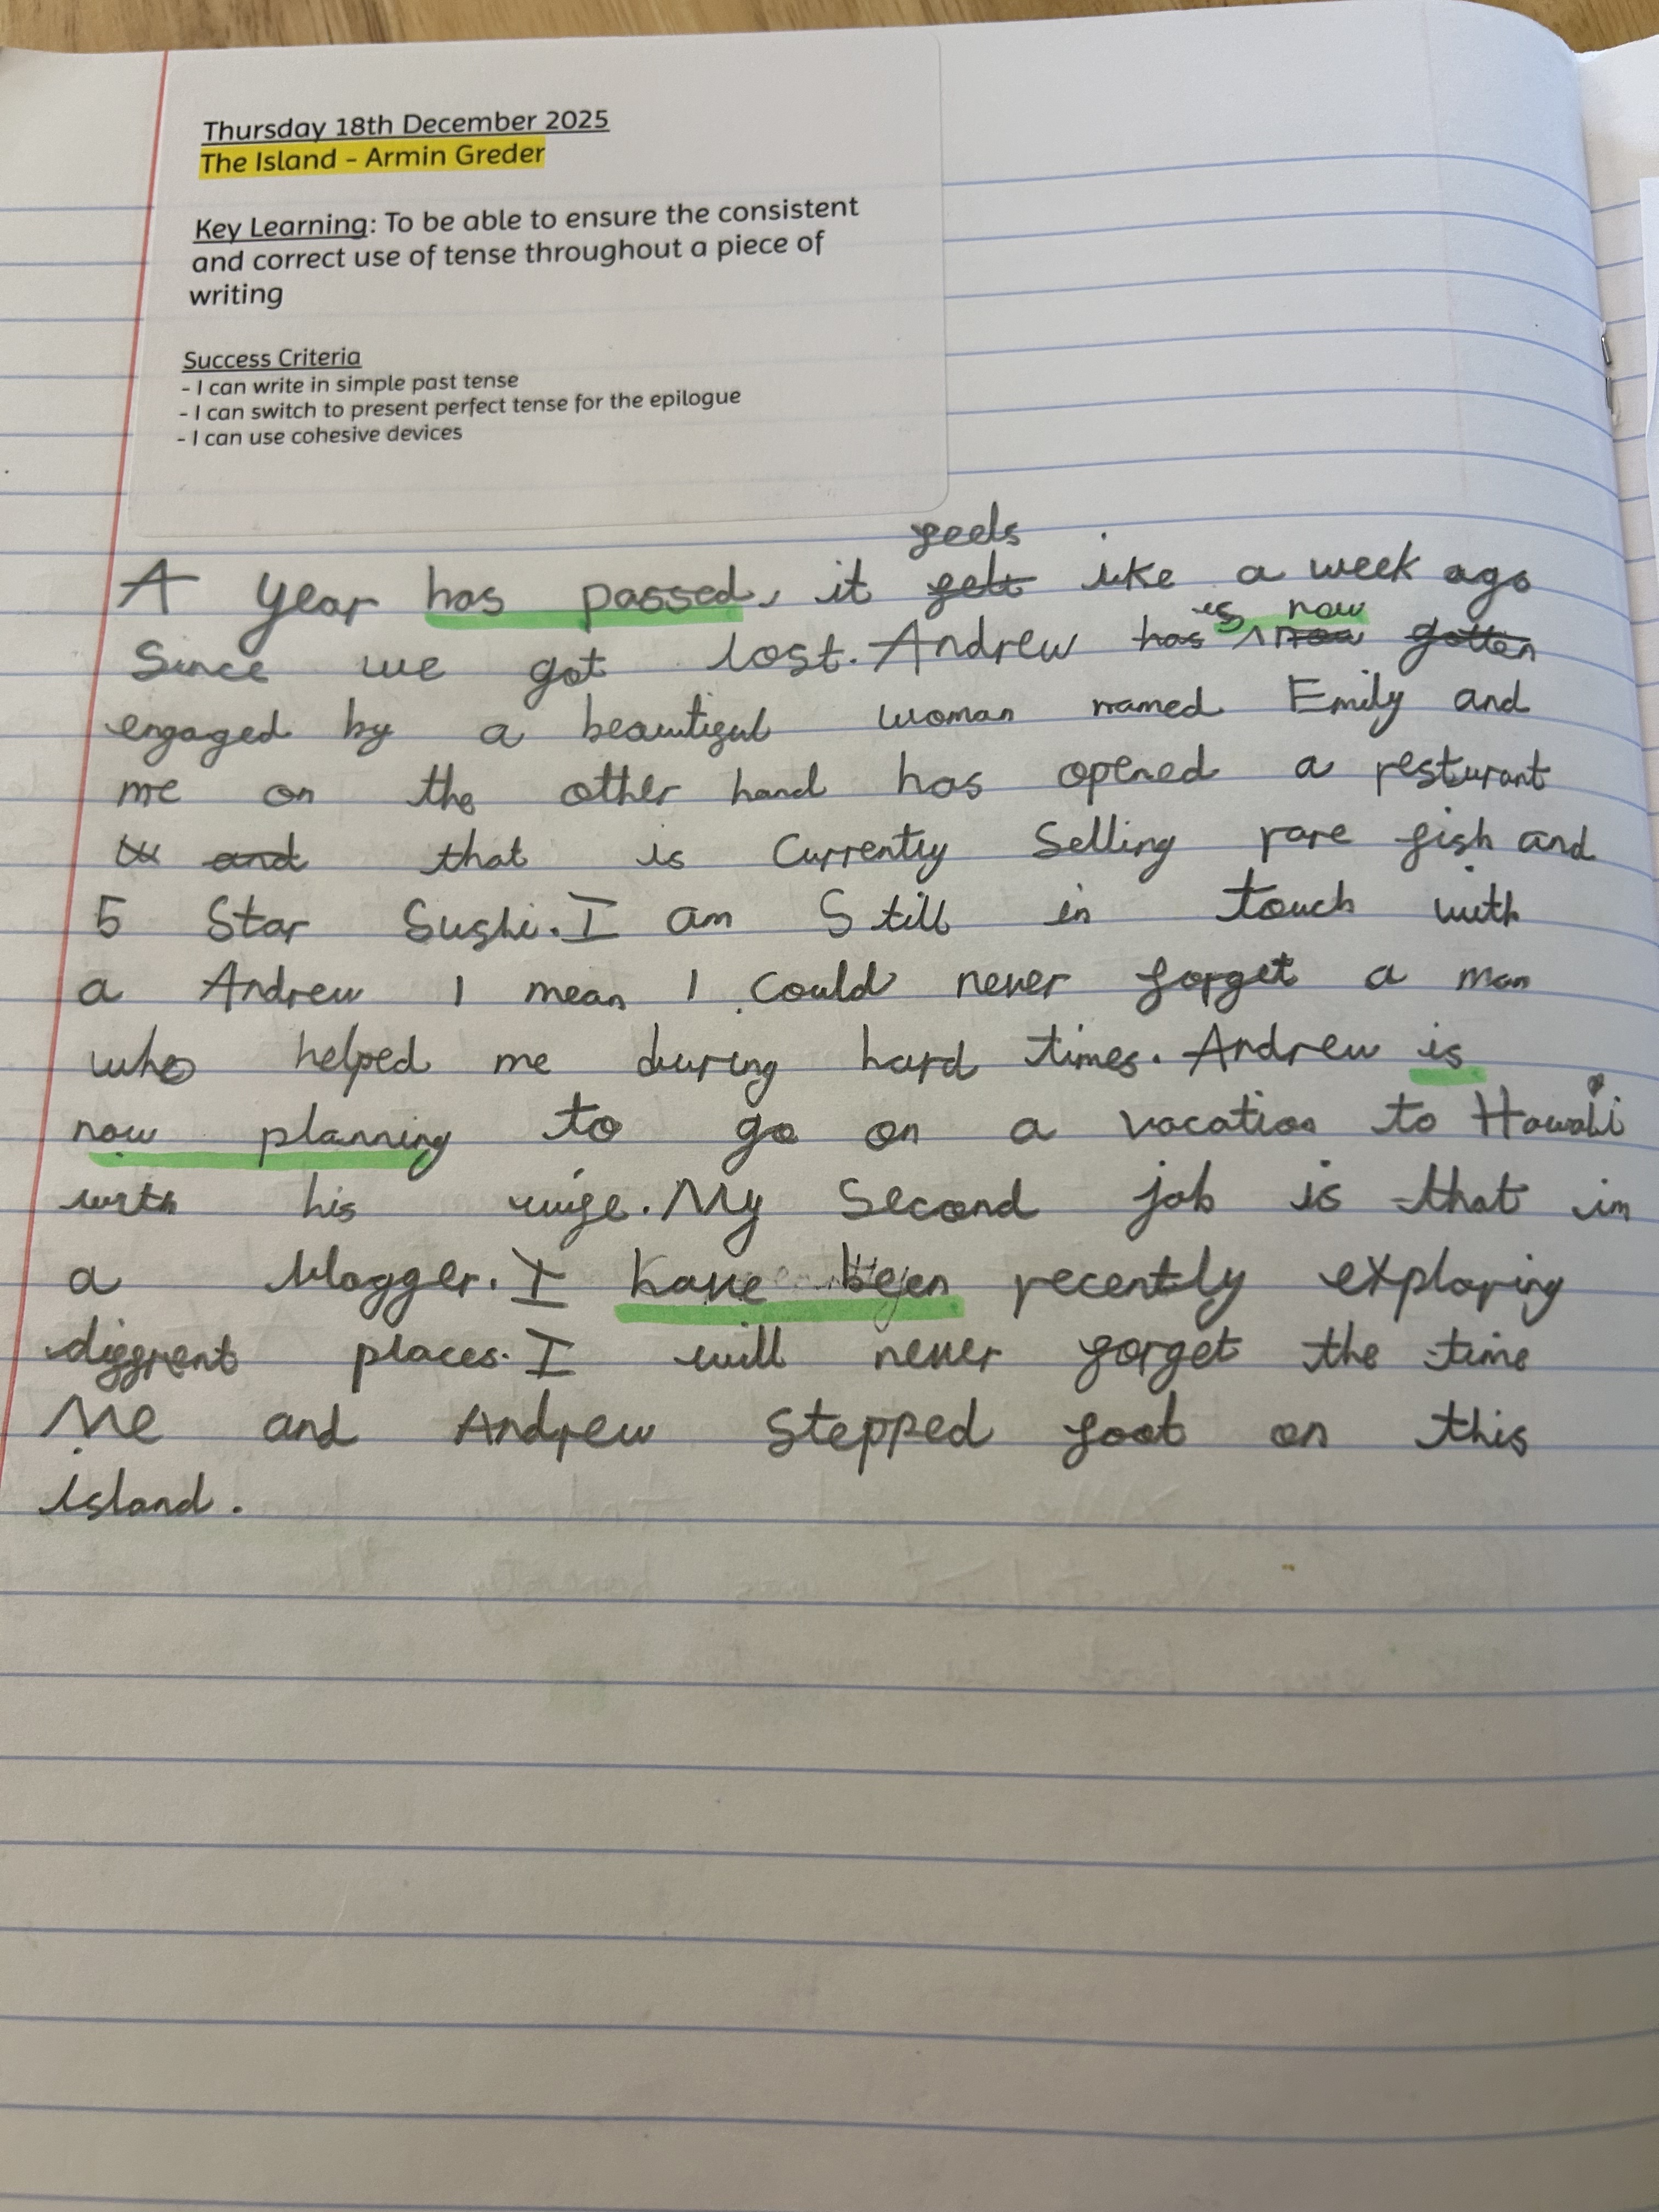 Thursday 18th December 2025
The Island - Armin Greder
Key Learning: To be able to ensure the consistent
and correct use of tense throughout a piece of
writing
Success Criteria
- I can write in simple past tense
- I can switch to present perfect tense for the epilogue
- I can use cohesive devices
feels
A year has passed, it felt like a week ago
is now
Since we got lost. Andrew has now gotten
engaged by a beautiful woman named Emily and
me on the other hand has opened a resturant
and that is Currently Selling rare fish and
5 Star Sushi. I am Still in touch with
a Andrew I mean I could never forget a man
who helped me during hard times. Andrew is
now planning to go on a vacation to Hawaii
with his wife. My Second job is that im
a Vlogger. I have been recently exploring
diffrent places. I will never forget the time
Me and Andrew Stepped foot on this
island.